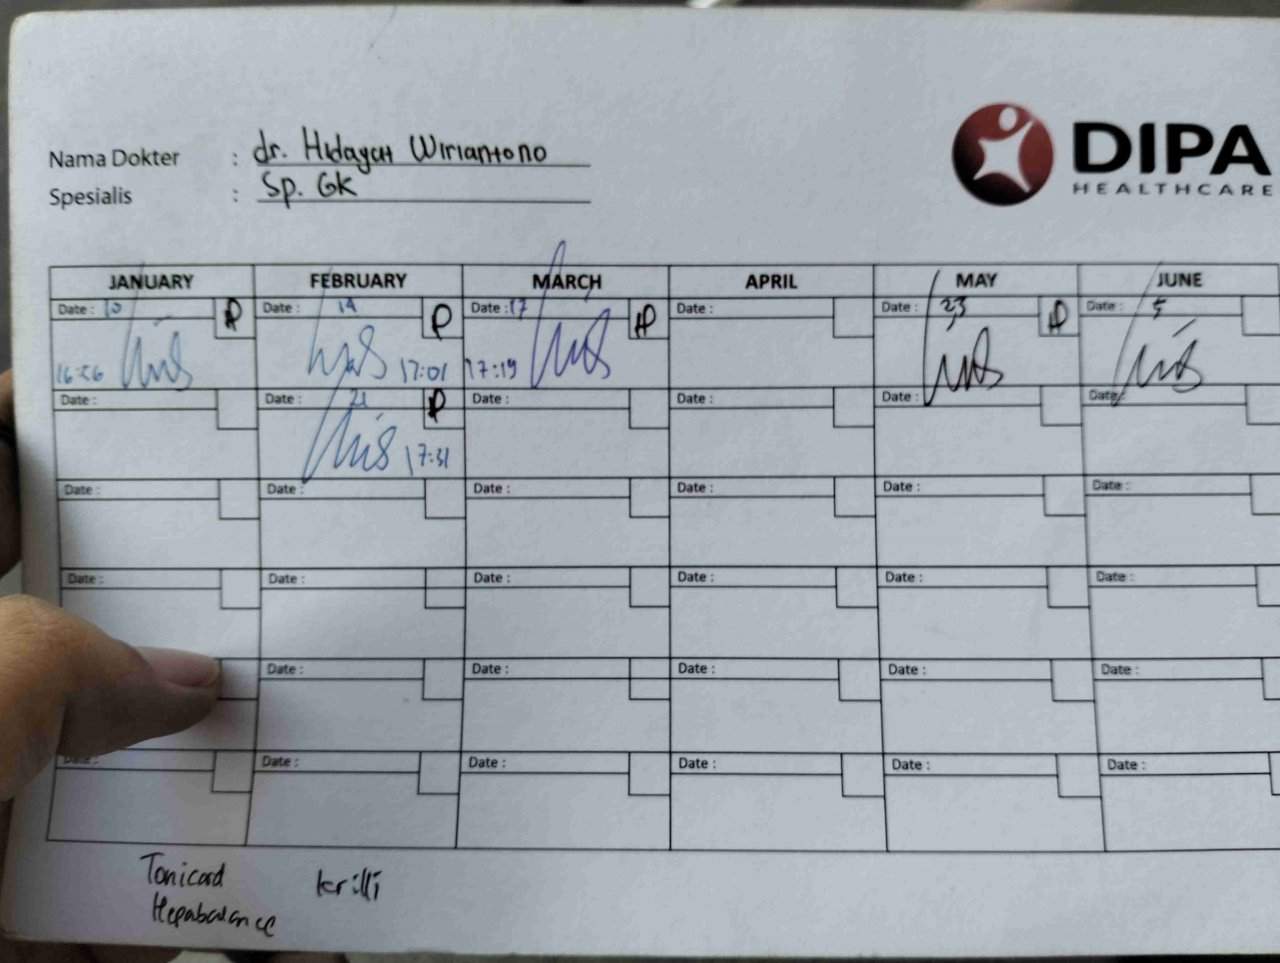 Nama Dokter : dr. Hidayat Wiriantono
Spesialis : Sp. GK
DIPA
HEALTHCARE
JANUARY FEBRUARY MARCH APRIL MAY JUNE
Date : 10 Date : 19 Date : 17 Date : Date : 23 Date : 5
16:26 17:01 17:19
Date : Date : 21 Date : Date : Date : Date
17:31
Date : Date : Date : Date : Date : Date :
Date : Date : Date : Date : Date : Date :
Date : Date : Date : Date : Date :
Date : Date : Date : Date : Date :
Tonicard krilli
Hepabalance